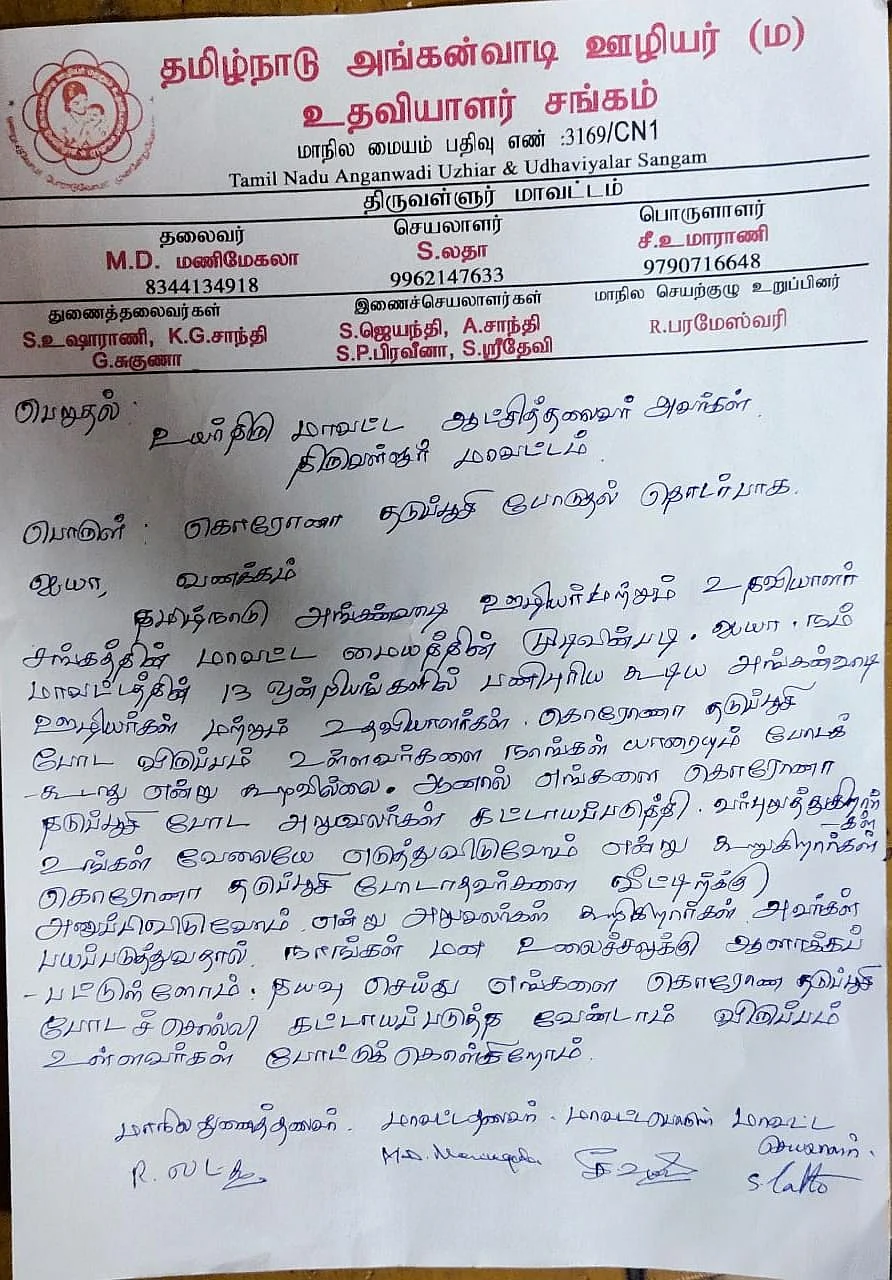 தமிழ்நாடு அங்கன்வாடி ஊழியர் (ம)
உதவியாளர் சங்கம்
மாநில மையம் பதிவு எண் :3169/CN1
Tamil Nadu Anganwadi Uzhiar & Udhaviyalar Sangam
திருவள்ளுர் மாவட்டம்
தலைவர் செயலாளர் பொருளாளர்
M.D. மணிமேகலா S.லதா சீ.உமாராணி
8344134918 9962147633 9790716648
துணைத்தலைவர்கள் இணைச்செயலாளர்கள் மாநில செயற்குழு உறுப்பினர்
S.உஷாராணி, K.G.சாந்தி S.ஜெயந்தி, A.சாந்தி R.பரமேஸ்வரி
G.சுகுணா S.P.பிரவீனா, S.ஸ்ரீதேவி
பெறுதல் :
உயர்திரு மாவட்ட ஆட்சித்தலைவர் அவர்கள்.
திருவள்ளூர் மாவட்டம்.
பொருள் : கொரோனா தடுப்பூசி போடுதல் தொடர்பாக.
ஐயா, வணக்கம்
தமிழ்நாடு அங்கன்வாடி ஊழியர் மற்றும் உதவியாளர்
சங்கத்தின் மாவட்ட மையத்தின் முடிவின்படி. ஐயா. நம்
மாவட்டத்தின் 13 ஒன்றியங்களில் பணிபுரிய கூடிய அங்கன்வாடி
ஊழியர்கள் மற்றும் உதவியாளர்கள். கொரோனா தடுப்பூசி
போட விருப்பம் உள்ளவர்களை நாங்கள் யாரையும் போடக்
-கூடாது என்று கூறவில்லை. ஆனால் எங்களை கொரோனா
தடுப்பூசி போட அலுவலர்கள் கட்டாயப்படுத்தி. வற்புறுத்துகிறார்
-கள்
உங்கள் வேலையே எடுத்துவிடுவோம் என்று கூறுகிறார்கள்
கொரோனா தடுப்பூசி போடாதவர்களை வீட்டிற்கு
அனுப்பிவிடுவோம் என்று அலுவலர்கள் கூறுகிறார்கள். அவர்கள்
பயப்படுத்துவதால். நாங்கள் மன உலைச்சலுக்கு ஆளாக்கப்
-பட்டுள்ளோம். தயவு செய்து எங்களை கொரோனா தடுப்பூசி
போடச் சொல்லி கட்டாயப்படுத்த வேண்டாம் விருப்பம்
உள்ளவர்கள் போட்டுக் கொள்கிறோம்.
மாநில துணைத்தலைவர். மாவட்ட தலைவர். மாவட்ட பொருளாளர் மாவட்ட
செயலாளர்.
R. M.D. S. Latha